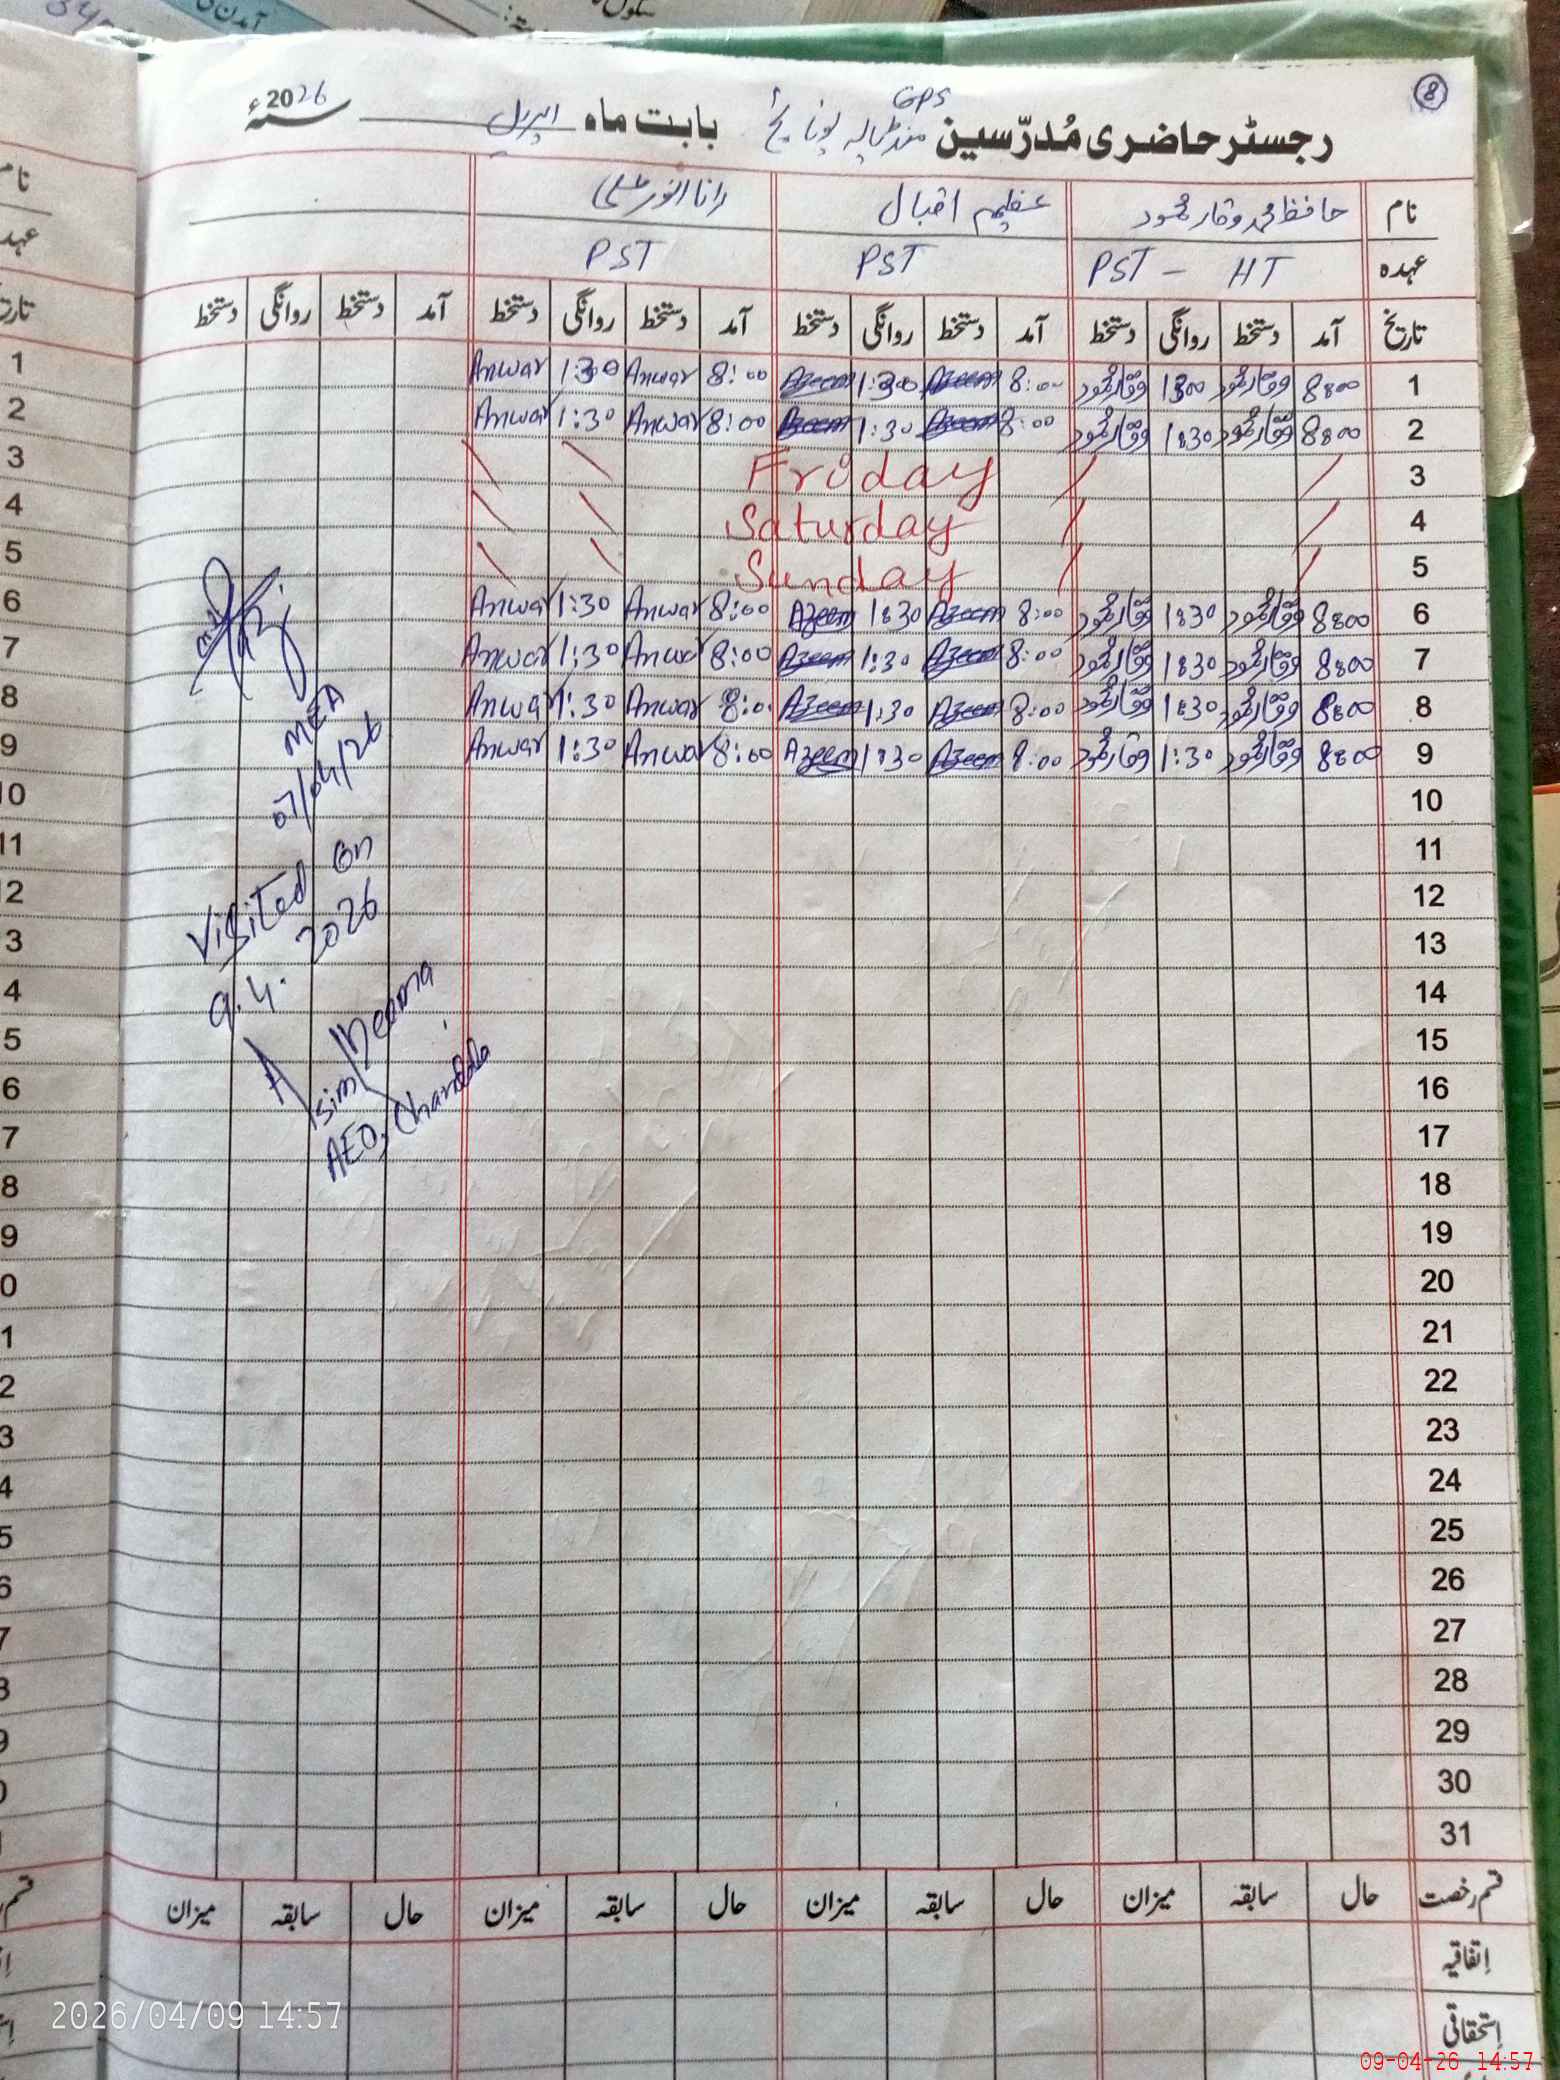 8
رجسٹر حاضری مُدرّسین GPS منڈیالہ پونا یچ بابت ماہ اپریل 2026ء
نام حافظ محمد وقار محمود عظیم اقبال رانا انور علی
عہدہ PST - HT PST PST
تاریخ آمد دستخط روانگی دستخط آمد دستخط روانگی دستخط آمد دستخط روانگی دستخط آمد دستخط روانگی دستخط
1 8:00 وقار محمود 1:30 وقار محمود 8:00 Azeem 1:30 Azeem 8:00 Anwar 1:30 Anwar
2 8:00 وقار محمود 1:30 وقار محمود 8:00 Azeem 1:30 Azeem 8:00 Anwar 1:30 Anwar
3 Friday
4 Saturday
5 Sunday
6 8:00 وقار محمود 1:30 وقار محمود 8:00 Azeem 1:30 Azeem 8:00 Anwar 1:30 Anwar
7 8:00 وقار محمود 1:30 وقار محمود 8:00 Azeem 1:30 Azeem 8:00 Anwar 1:30 Anwar
8 8:00 وقار محمود 1:30 وقار محمود 8:00 Azeem 1:30 Azeem 8:0 Anwar 1:30 Anwar
9 8:00 وقار محمود 1:30 وقار محمود 8:00 Azeem 1:30 Azeem 8:00 Anwar 1:30 Anwar
10
11
12
13
14
15
16
17
18
19
20
21
22
23
24
25
26
27
28
29
30
31
MEA
07/04/26
Visited on
9.4.2026
Asim
AEO, Chandala
قسم رخصت حال سابقہ میزان حال سابقہ میزان حال سابقہ میزان حال سابقہ میزان
اِتفاقیہ
اِستحقاقی
2026/04/09 14:57
09-04-26 14:57